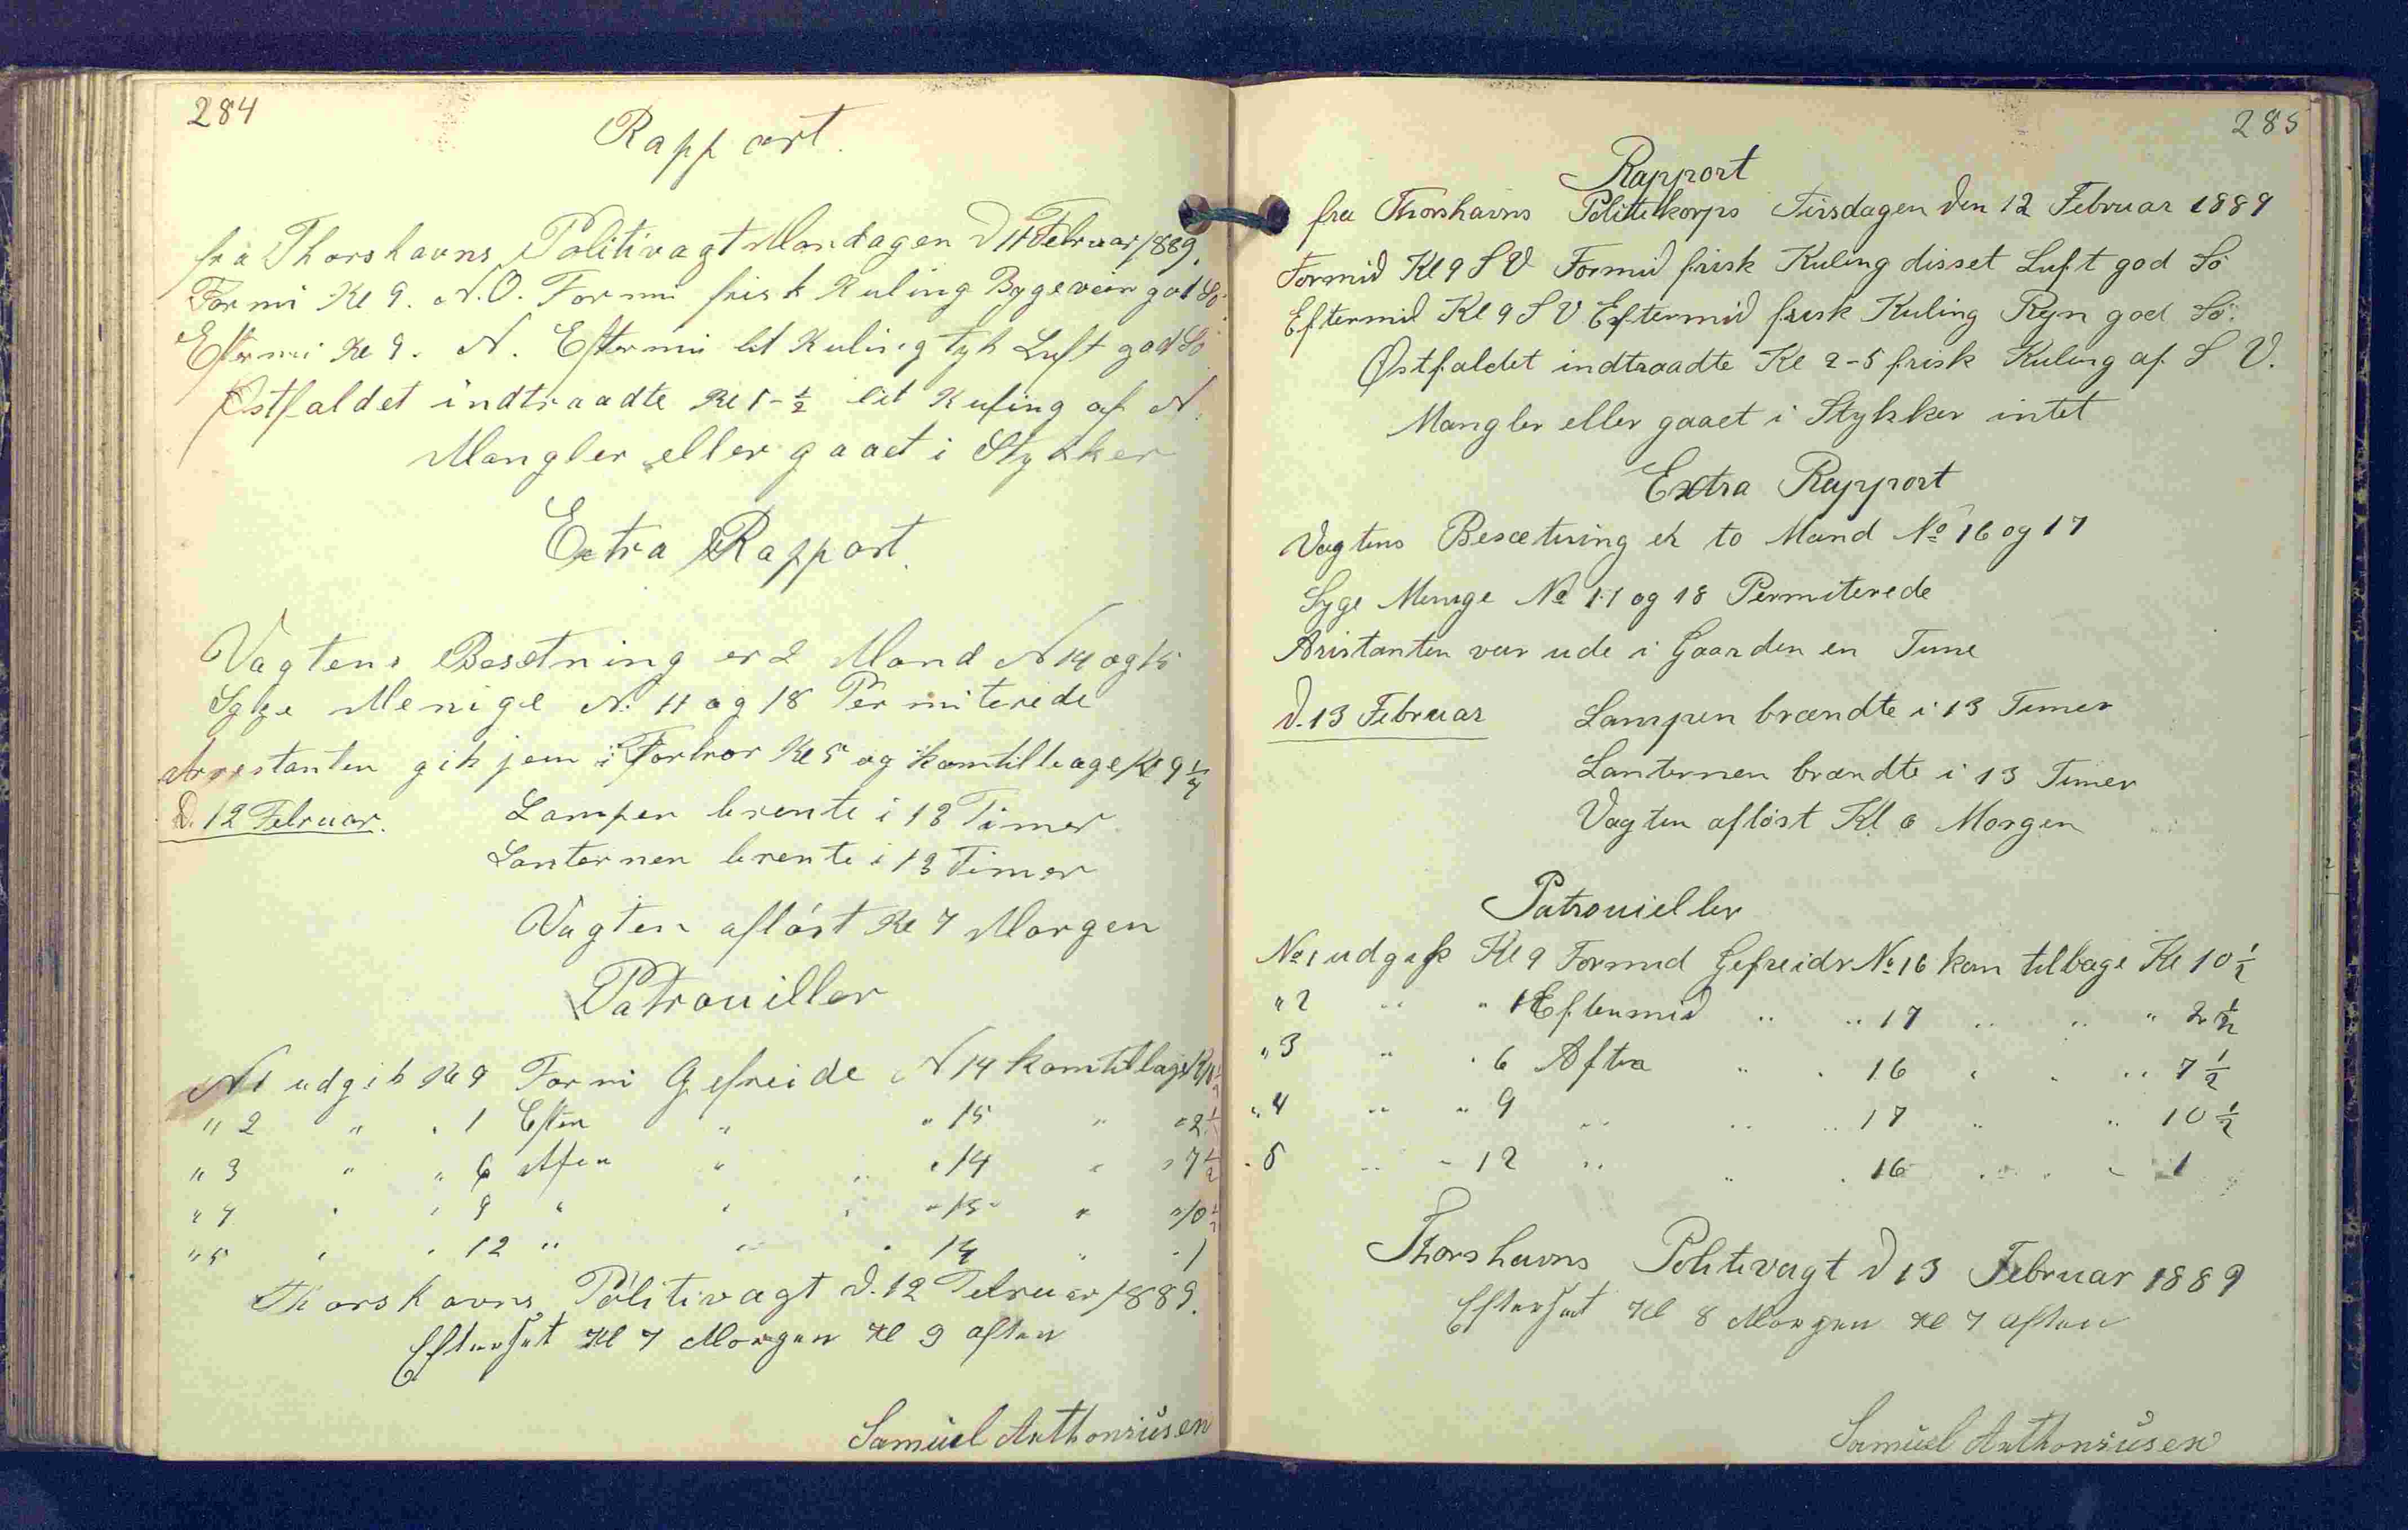 284
Rapport.
fra Thorshavns Politivagt Mandagen D 11 Februar 1889.
Formi Kl 9. N.O. Formi frisk Kuling Bygeveir god Sö
Eftermi Kl 9. N. Eftermi let Kuling tyk Luft god Sö
Østfaldet indtraadte Kl 1-½ let Kuling af N.
Mangler eller gaaet i Stykker
Extra Rapport.
Vagtens Besætning er 2 Mand N 14 og 15
Syge Menige N. 11 og 18 Permiterede
Arrestanten gik jem i Forhør Kl 5 og kom tilbage Kl 9¼
D. 12 Februar. Lampen brente i 13 Timer
Lanternen brente i 13 Timer
Vagten afløst Kl 7 Morgen
Patrouiller
N 1 udgik Kl 9 Formi Gefreide N 14 kom tilbage Kl 10½
" 2 " " 1 Eften " " 15 " " 2½
" 3 " " 6 Afen " " 14 " " 7½
" 4 " " 9 " " " 15 " " 10½
" 5 " " 12 " " " 14 " " 1
Thorshavns Politivagt d. 12 Februar 1889.
Efterset Kl 7 Morgen Kl 9 aften
Samuel Anthoniusen
285
Rapport
fra Thorshavns Politikorps Tirsdagen den 12 Februar 1889
Formid Kl 9 S V Formid frisk Kuling disset Luft god Sö
Eftermid Kl 9 S V Eftermid frisk Kuling Rejn god Sö.
Østfaldet indtraadte Kl 2-5 frisk Kuling af S V.
Mangler eller gaaet i Stykker intet
Extra Rapport
Vagtens Besætning er to Mand No 16 og 17
Syge Menige No 11 og 18 Permiterede
Aristanten var ude i Gaarden en Time
D. 13 Februar Lampen brændte i 13 Timer
Lanternen brændte i 13 Timer
Vagten afløst Kl 6 Morgen
Patrouieller
No 1 udgik Kl 9 Formid Gefreidr No 16 kom tilbage Kl 10½
" 2 " " 1 Eftermid " " 17 " " " 2½
" 3 " " 6 Aften " " 16 " " " 7½
" 4 " " 9 " " " 17 " " 10½
" 5 " " 12 " " " 16 " " " 1
Thorshavns Politivagt D 13 Februar 1889
Efterset Kl 8 Morgen Kl 7 aften
Samuel Anthoniusen